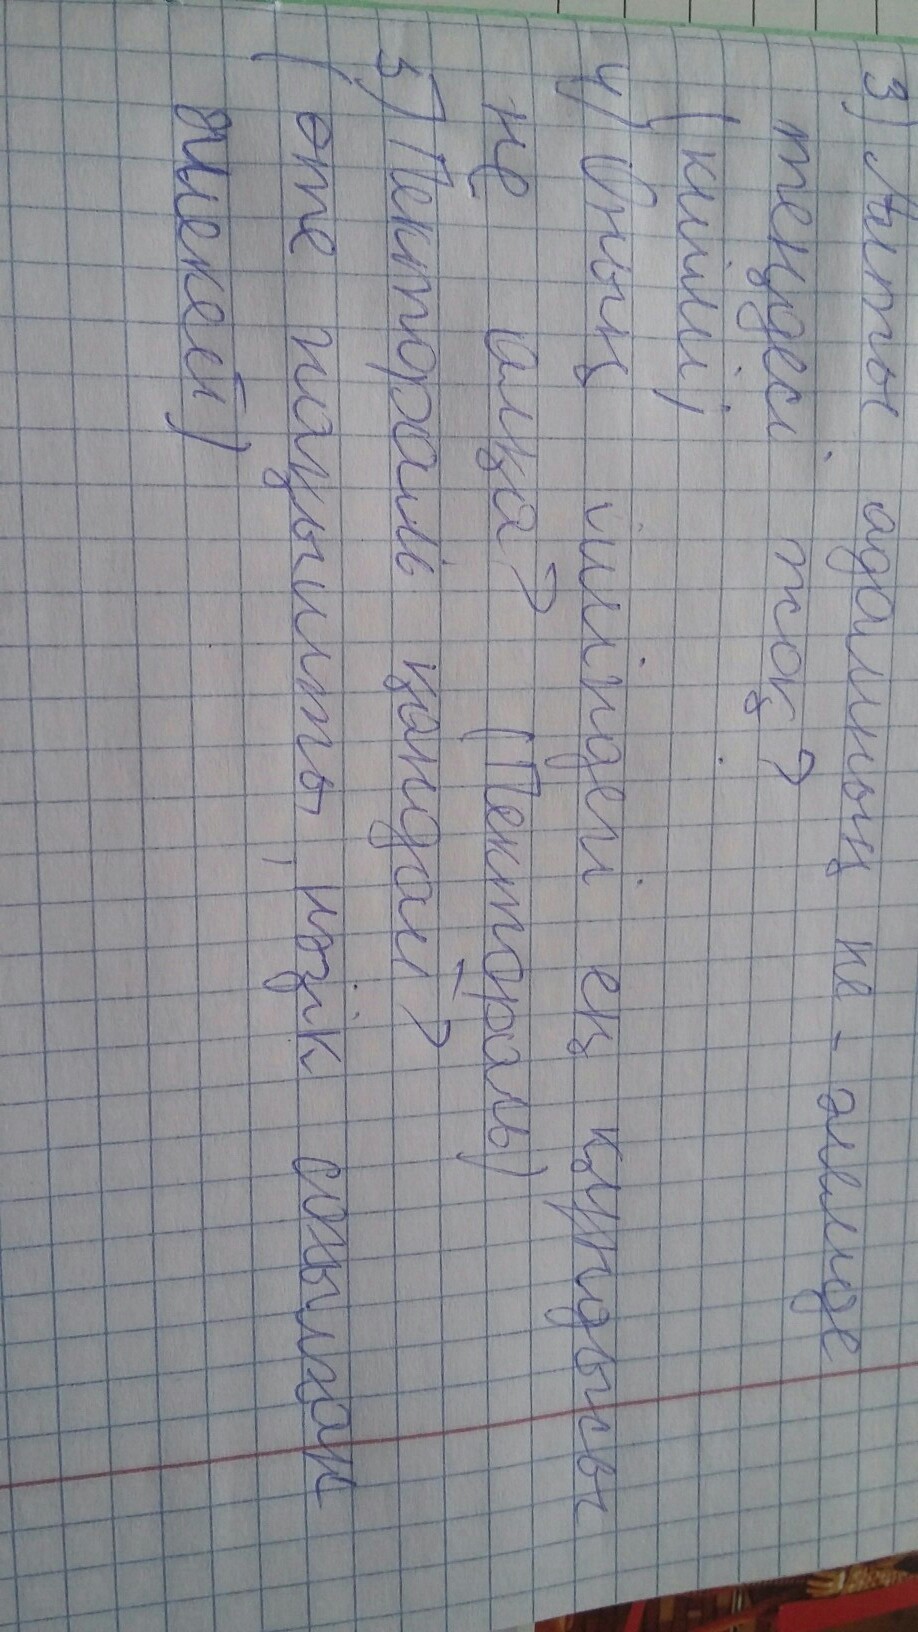 3) Алтын адамның не - әлемде
теңдесі жоқ?
(киімі)
4) Оның ішіндегі ең құндысы
не алқа? (Пектораль)
5) Пектораль қандай?
(өте нақышты, нәзік соғылған
әшекей)